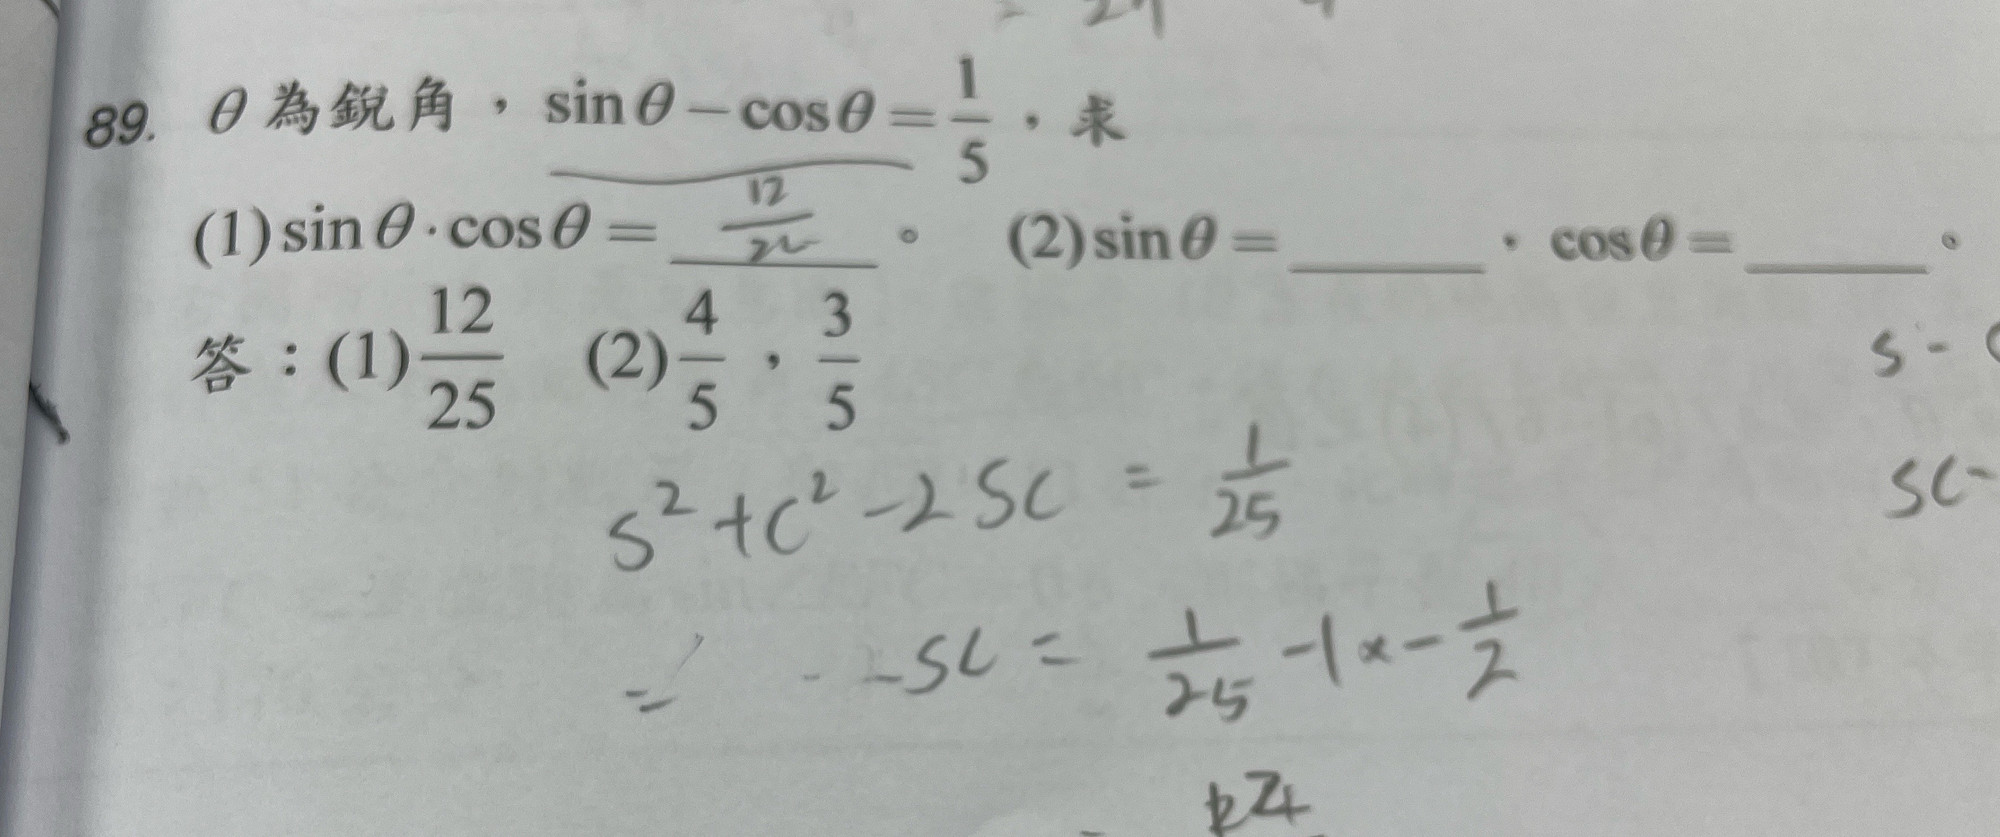 = 24
89. θ 為銳角，sinθ－cosθ＝1/5，求
(1) sinθ·cosθ＝ 12/25 。 (2) sinθ＝______，cosθ＝______。
答：(1) 12/25 (2) 4/5，3/5
s -
s² + c² - 2sc = 1/25
sc -
= - sc = 1/25 - 1 × - 1/2
24